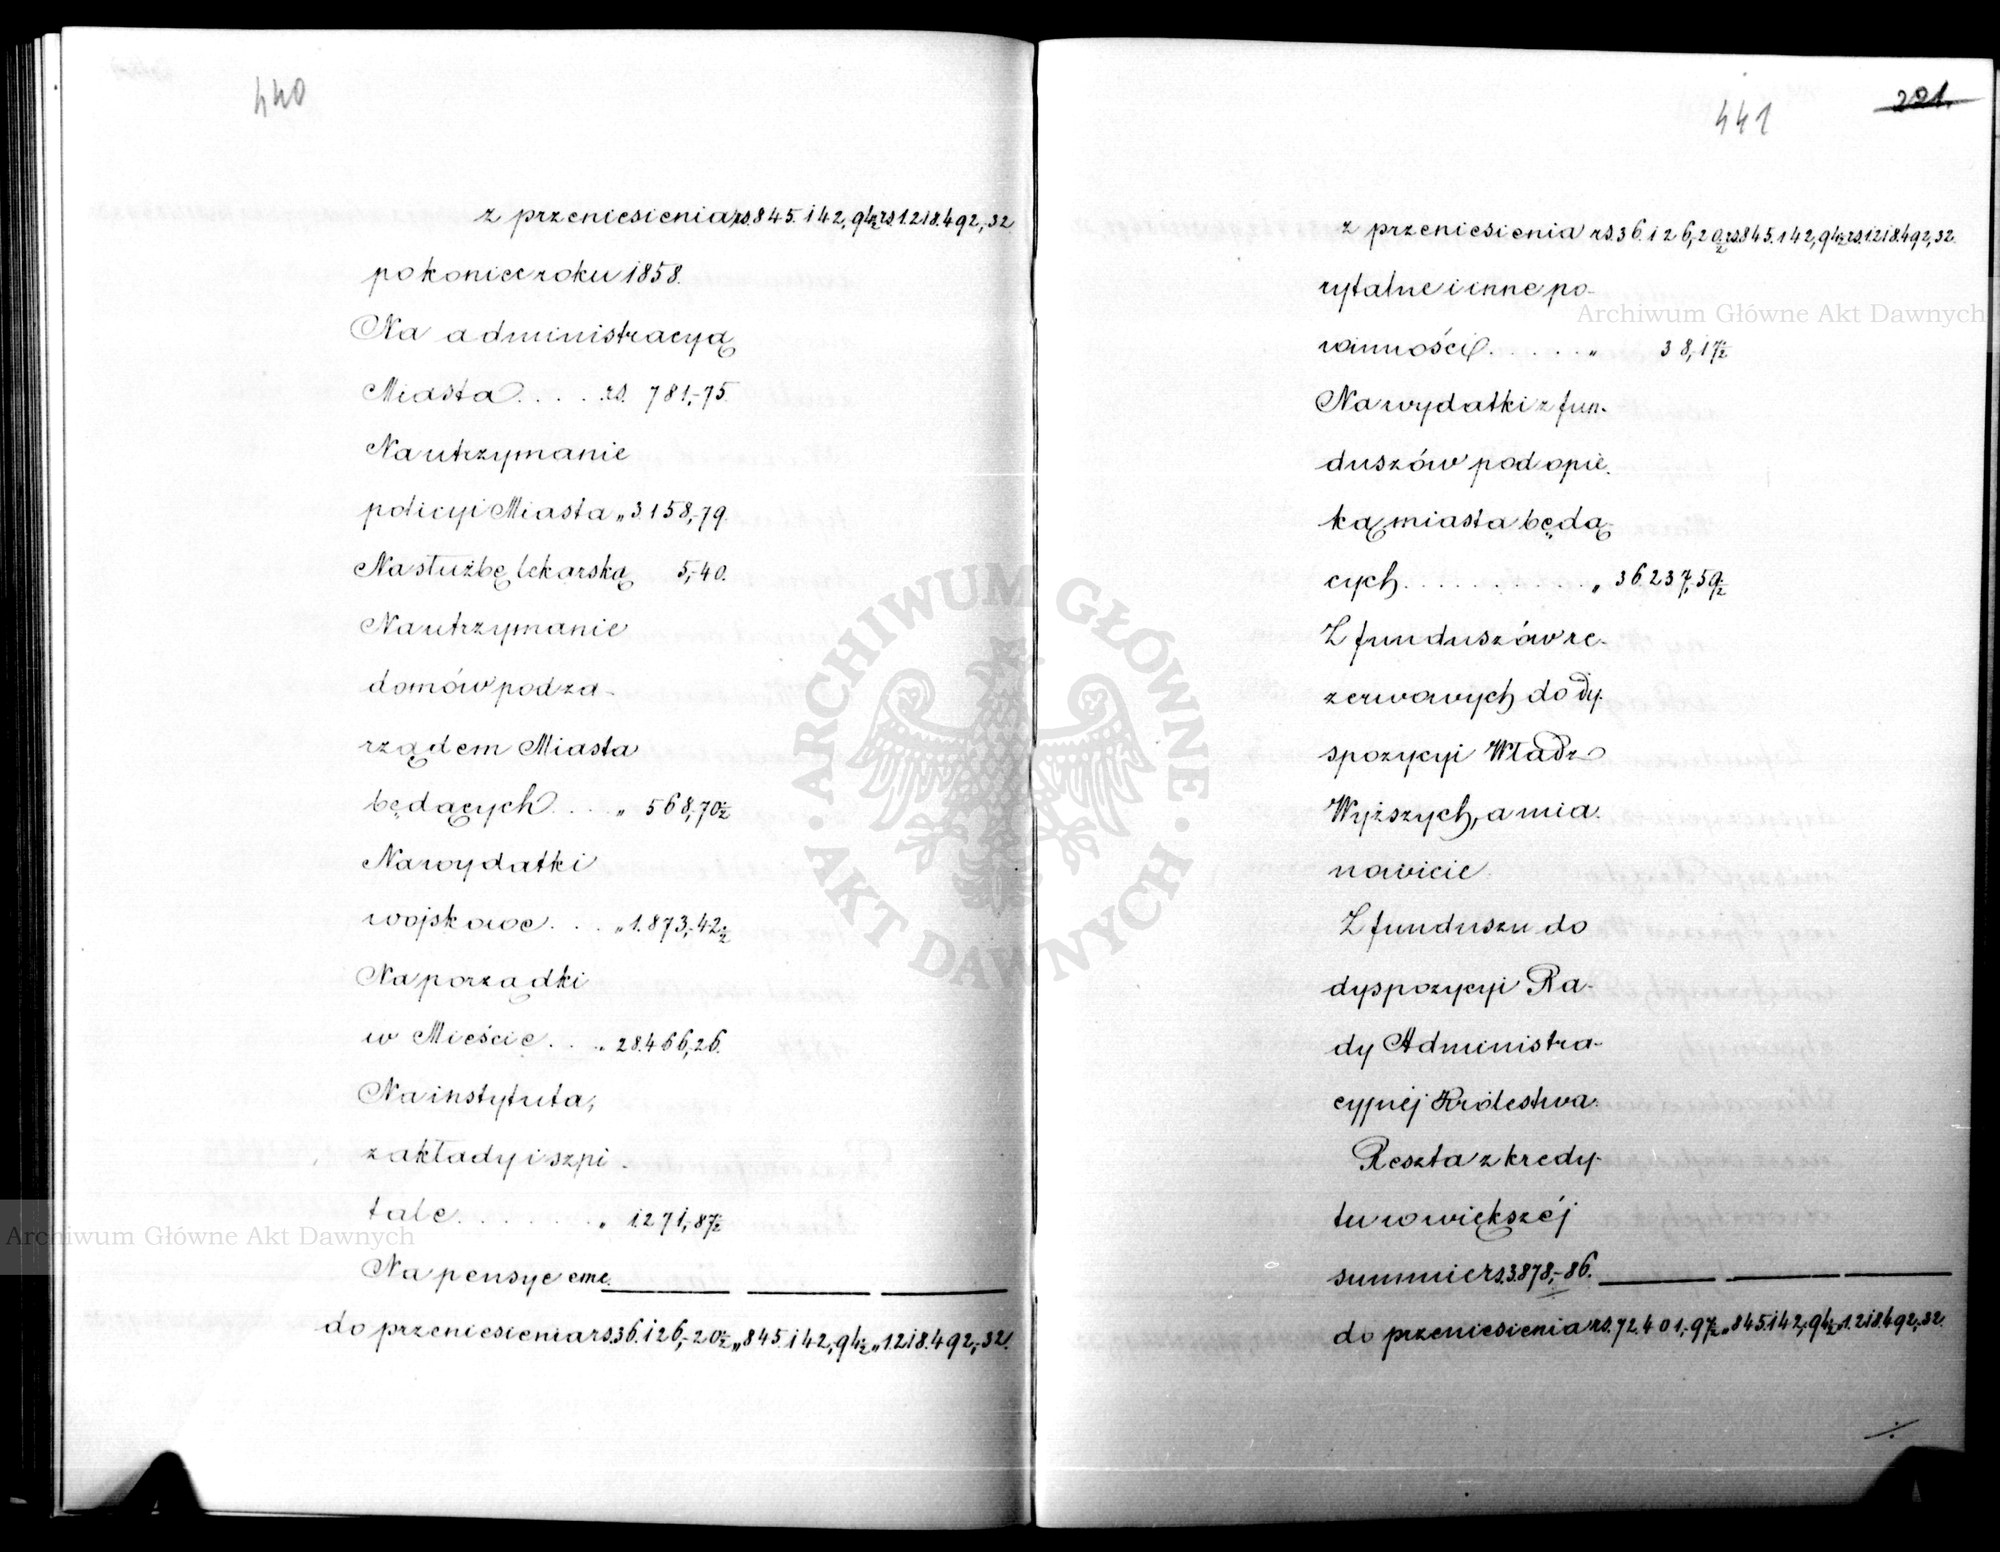 440
z przeniesienia rs. 845.142,94½ rs. 1.218.492,-32.
po koniec roku 1858.
Na administracyą
Miasta . . . . rs. 781,-75.
Na utrzymanie
policyi Miasta „ 3.158,-79.
Na służbę lekarską 5,-40.
Na utrzymanie
domów pod za-
rządem Miasta
będących . . . „ 568,-70½
Na wydatki
wojskowe . . . „ 1.873,-42½
Na porządki
w Mieście . . . „ 28.466,26.
Na instytuta,
zakłady i szpi-
tale . . . . . . . „ 1.271,-87½
Na pensye eme-
do przeniesienia rs. 36.126,-20½ „ 845.142,94½ „ 1.218.492,-32.
441
221.
z przeniesienia rs. 36.126,-20½ rs. 845.142,94½ rs. 1.218.492,32.
rytalne i inne po-
winności . . . . . „ 38,-17½
Na wydatki z fun-
duszów pod opie-
ką miasta będą-
cych . . . . . . . . . . „ 36.237,59½
Z funduszów re-
zerwowych do dy-
spozycyi Władz
Wyższych, a mia-
nowicie
Z funduszu do
dyspozycyi Ra-
dy Administra-
cyjnéj Królestwa.
Reszta z kredy-
tu w większéj
summie rs. 3.878,-86.
do przeniesienia rs. 72.401,-97½ „ 845.142,-94½ „ 1.218.492,-32.
Archiwum Główne Akt Dawnych
Archiwum Główne Akt Dawnych
ARCHIWUM GŁÓWNE
· AKT DAWNYCH ·